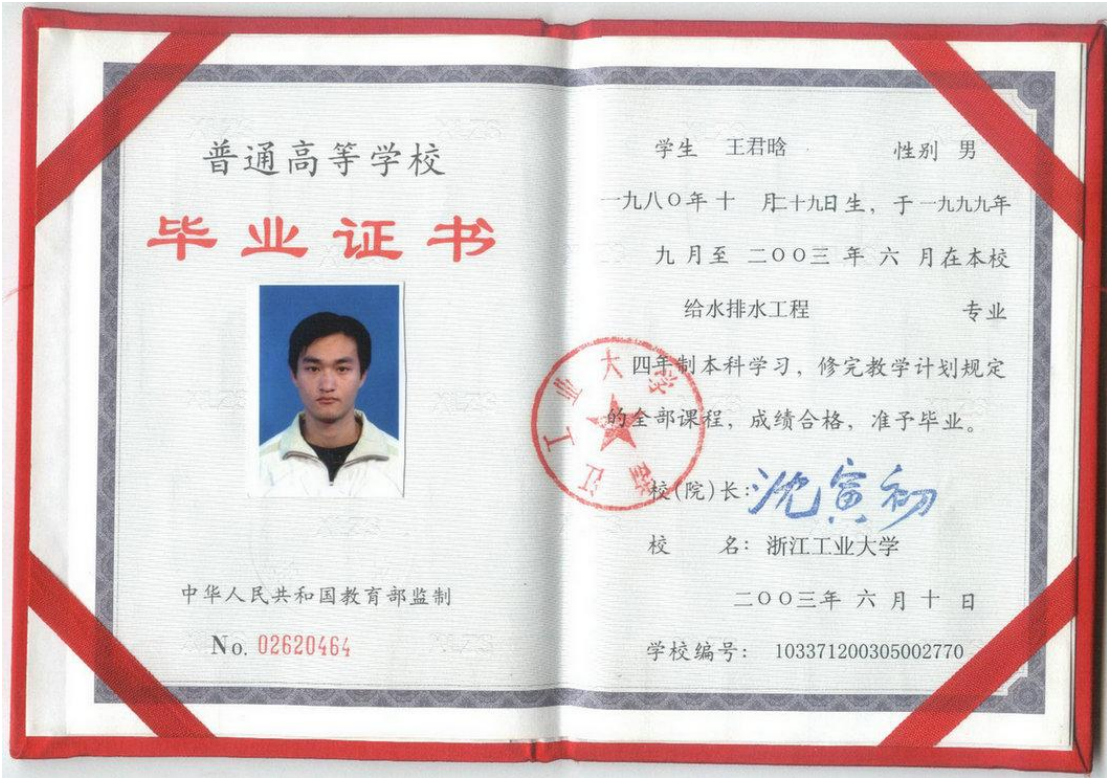 普通高等学校
毕业证书
中华人民共和国教育部监制
No. 02620464
学生 王君晗 性别 男
一九八〇年十 月二十九日生，于一九九九年
九月至 二〇〇三 年 六 月在本校
给水排水工程 专业
四年制本科学习，修完教学计划规定
的全部课程，成绩合格，准予毕业。
校(院)长：沈寅初
校 名：浙江工业大学
二〇〇三年 六 月 十 日
学校编号： 103371200305002770
浙江工业大学